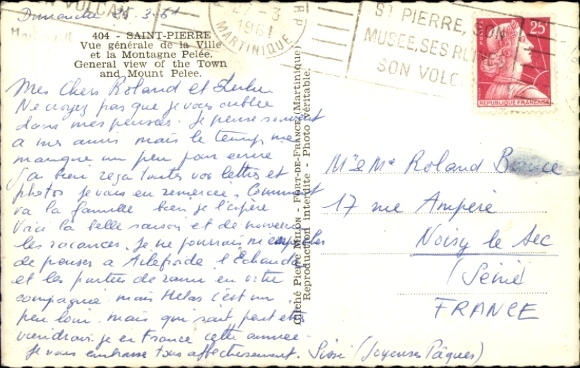 Dimanche 26-3-61
404 - SAINT-PIERRE
Vue générale de la Ville
et la Montagne Pelée.
General view of the Town
and Mount Pelee.
Mes Chers Roland et
Ne croyez pas que je vous oublie
dans mes pensées. Je pense souvent
a mes amis mais le temps me
manque un peu pour ecrire
J'ai bien reçu toutes vos lettres et
photos je vous en remercie. Comment
va la famille bien je l'espère
Vive la belle saison et de nouveau
les vacances. Je ne pourrais m'empêcher
de penser a Ailefroide l'Echauda
et les parties de rami en votre
compagnie mais Helas c'est un
peu loin. mais qui sait peut etre
viendrai-je en France cette année.
Je vous embrasse tous affectueusement. Sissi (Joyeuses Pâques)
Cliché Pierre MILON - FORT-DE-FRANCE (Martinique)
Reproduction Interdite - Photo Véritable.
27-3
1961
MARTINIQUE
R P
ST PIERRE, SON
MUSEE, SES RUINES
SON VOLCAN
25F
REPUBLIQUE FRANÇAISE
Mr & Me Roland
17 rue Ampère
Noisy le Sec
(Seine)
FRANCE